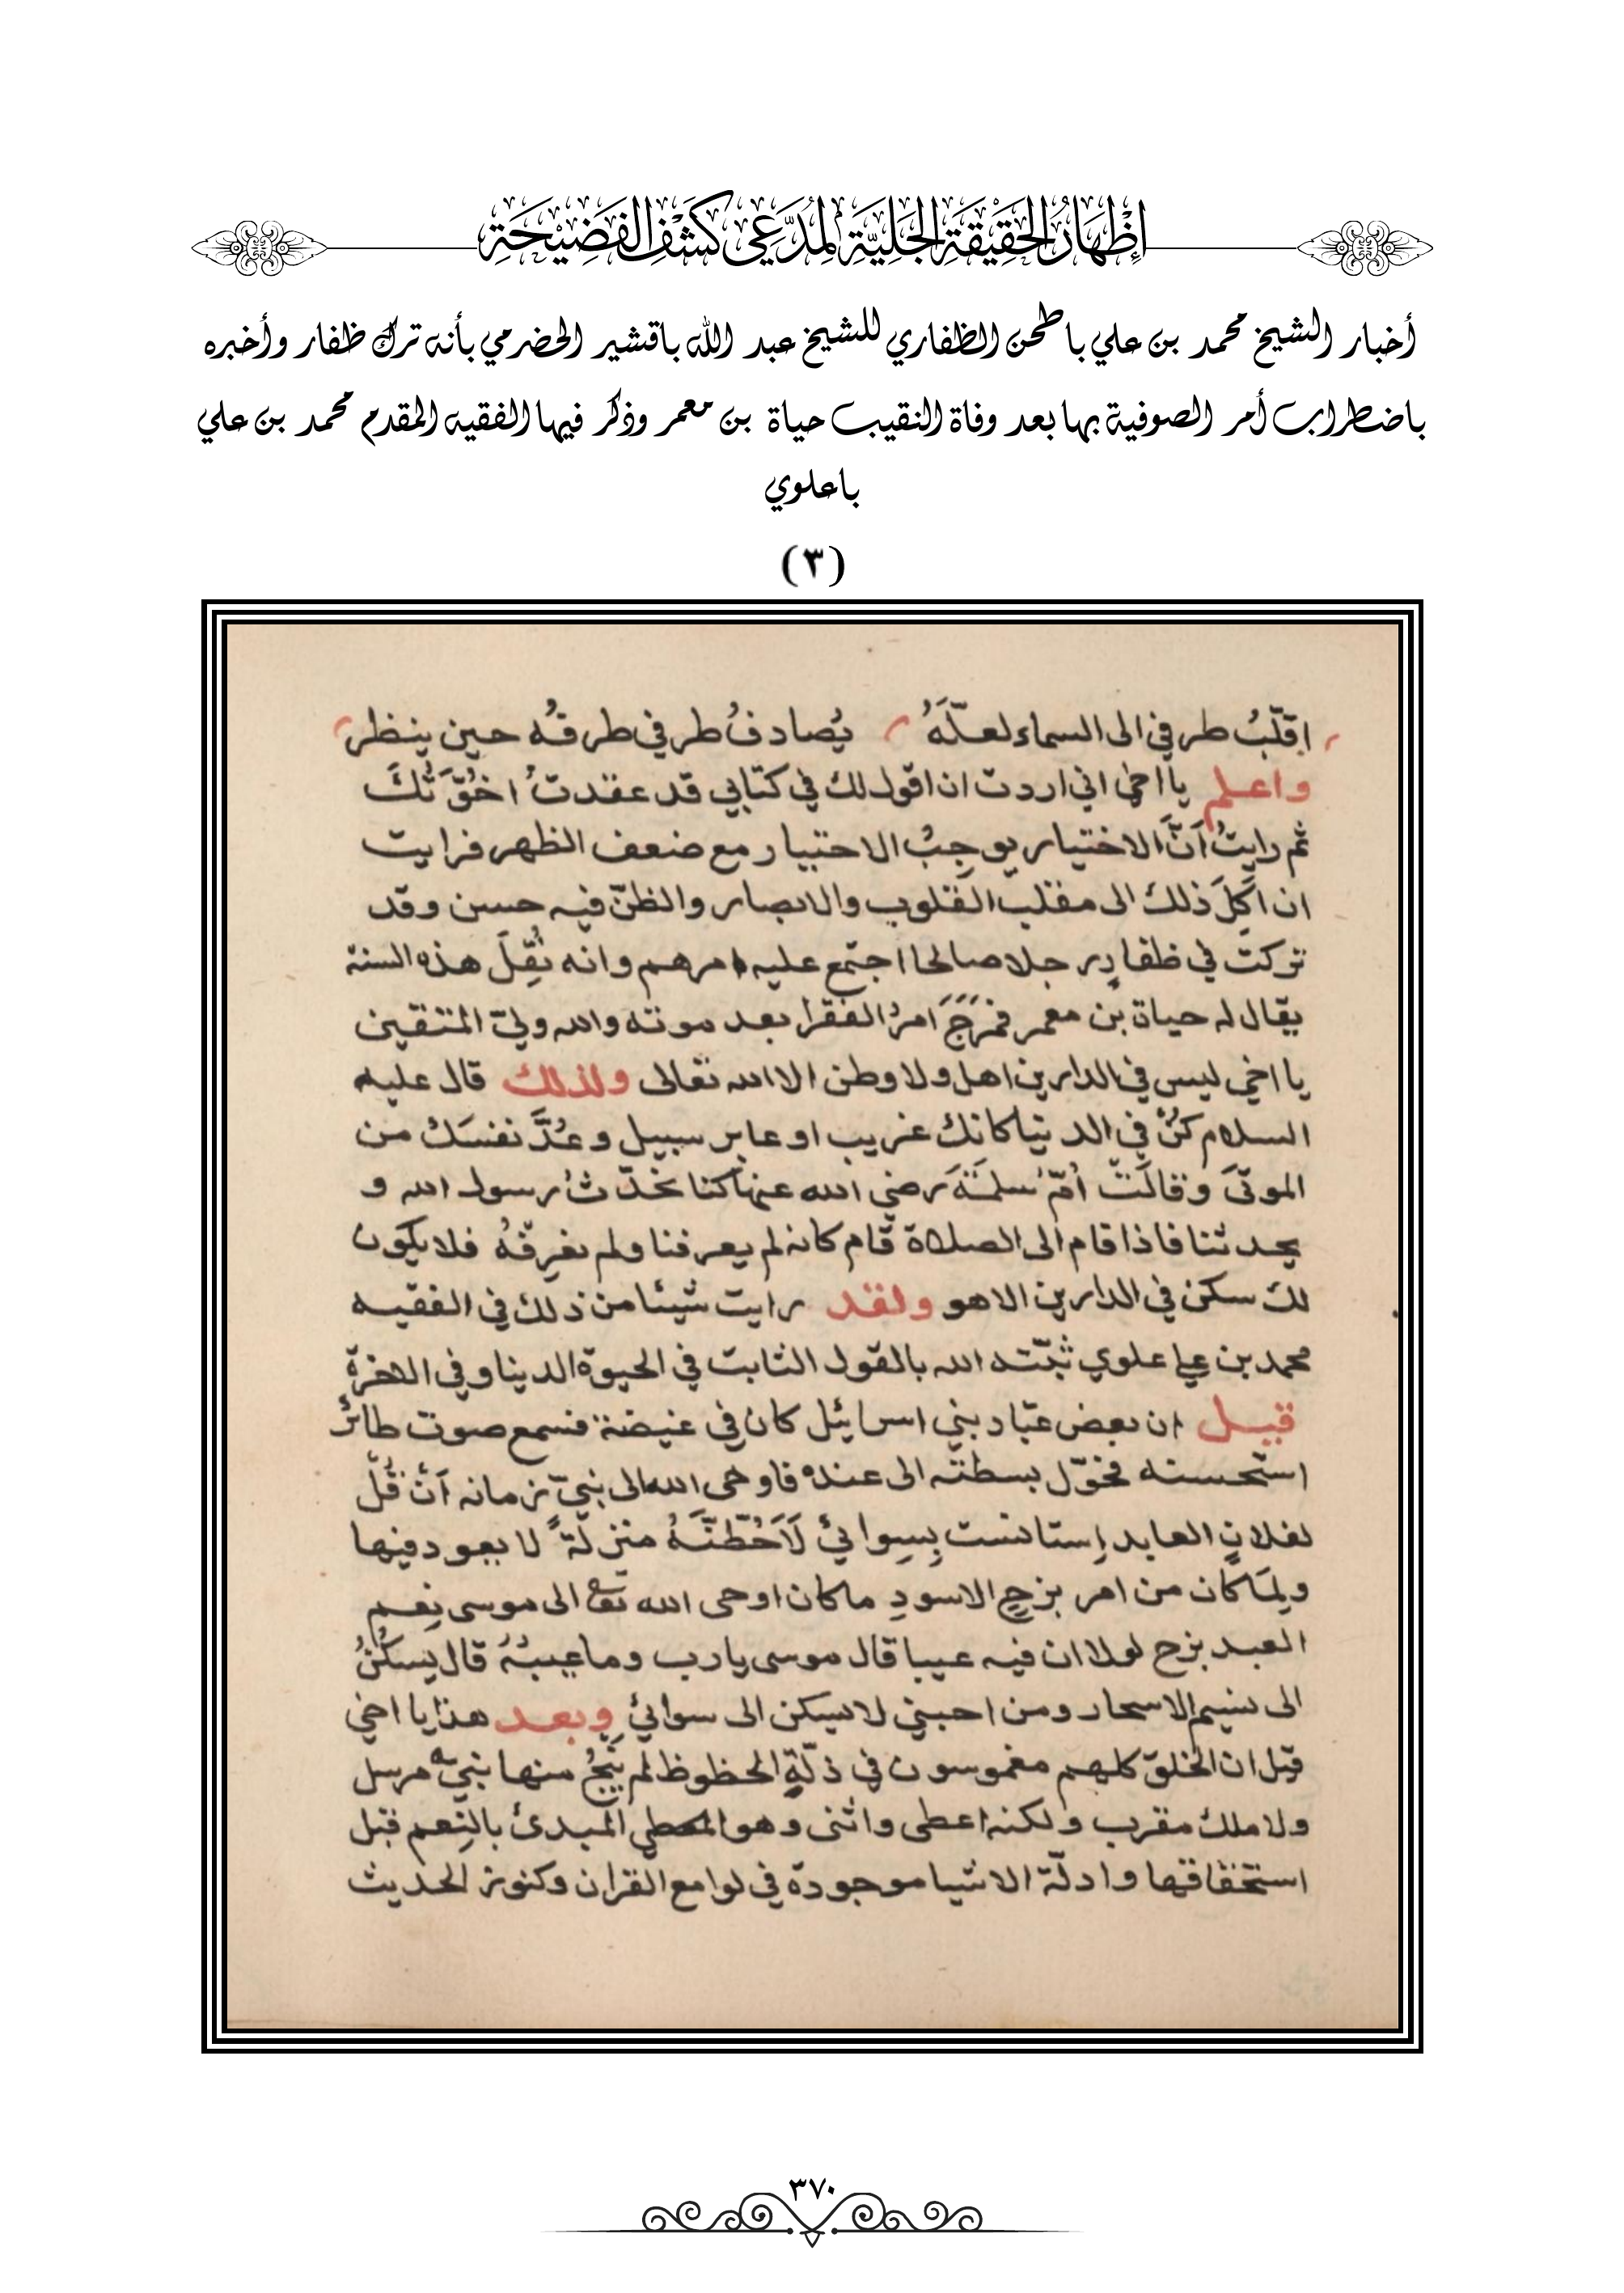 إِظْهَارُ الْحَقِيْقَةِ الْجَلِيَّةِ لِمُدَّعِي كَشْفِ الْفَضِيْحَةِ
أخبار الشيخ محمد بن علي باطحن الظفاري للشيخ عبد الله باقشير الحضرمي بأنه ترك ظفار وأخبره
باضطراب أمر الصوفية بها بعد وفاة النقيب حياة بن معمر وذكر فيها الفقيه المقدم محمد بن علي
باعلوي
(٣)
اقلّبُ طرفي الى السماء لعلّهُ يُصادفُ طرفي طرفُه حين ينظر
واعلم يا اخي اني اردت ان اقول لك في كتابي قد عقدتُ اخُوّتَكَ
ثم رايتُ اَنَّ الاختيار يوجِبُ الاختبار مع ضعف الظهر فرايت
ان اَكِلَ ذلك الى مقلب القلوب والابصار والظنّ فيه حسن وقد
تركت في ظفار رجلا صالحا اجتمع عليه امرهم وانه نُقِلَ هذه السنة
يقال له حياة بن معمر فمَرَجَ امرُ الفقرا بعد موته والله وليّ المتقين
يا اخي ليس في الدارين اهل ولا وطن الا الله تعالى ولذلك قال عليه
السلام كنْ في الدنيا كانك غريب او عابر سبيل وعُدَّ نفسَك من
الموتَى وقالَتْ اُمّ سلمَةَ رضي الله عنها كنا نحدّثُ رسول الله و
يحدثنا فاذا قام الى الصلاة قام كانه لم يعرفنا ولم نعرِفْهُ فلا يكون
لك سكن في الدارين الا هو ولقد رايت شيئا من ذلك في الفقيه
محمد بن علي علوي ثبّته الله بالقول الثابت في الحيوة الدينا وفي الاخرة
قيل ان بعض عبّاد بني اسرائيل كان في غيضة فسمع صوت طائر
استحسنه فحوّل بسطته الى عنده فاوحى الله الى نبيّ زمانه اَنْ قُلْ
لفلان العابد اِستانست بِسِوائي لَاَحُطَّنَّهُ منزلةً لا يعود فيها
ولِمَا كان من امر برخ الاسودِ ما كان اوحى الله تع الى موسى نِعم
العبد برخ لولا ان فيه عيبا قال موسى يا رب وما عيبُهُ قال يسكُنُ
الى نسيم الاسحار ومن احبني لا يسكن الى سوائي وبعد هذا يا اخي
قيل ان الخلق كلهم مغموسون في ذلّةِ الحظوظ لم ينجُ منها نبيّ مرسل
ولا ملك مقرب ولكنه اعطى واثنى وهو المعطي المبدئ بالنِعم قبل
استحقاقها وادلّة الاشيا موجودة في لوامع القران وكنوز الحديث
٣٧٠